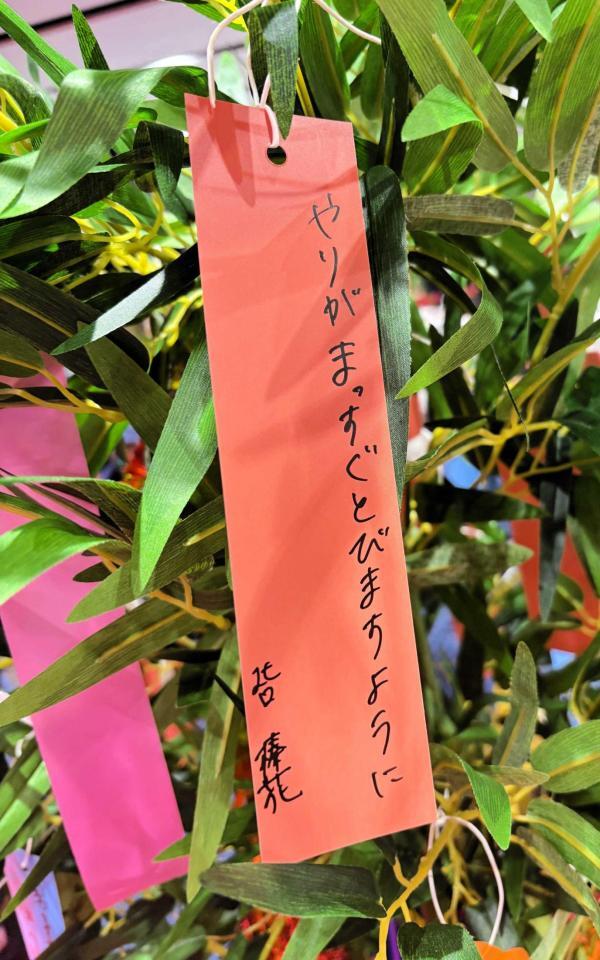 やりがまっすぐとびますように